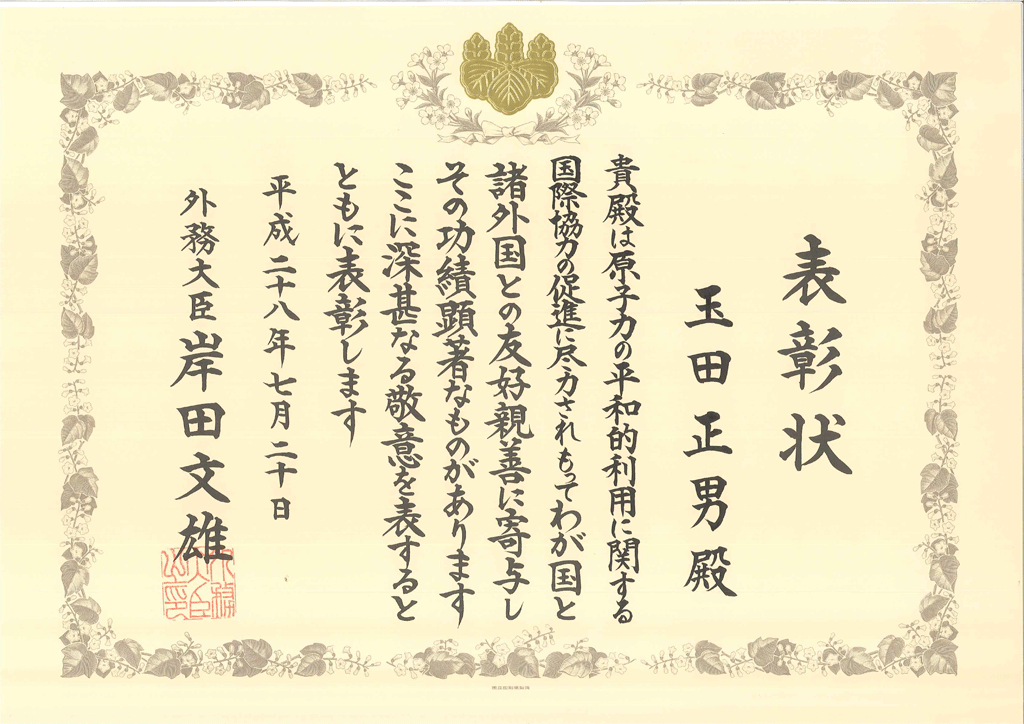 表彰状
玉田正男殿
貴殿は原子力の平和的利用に関する
国際協力の促進に尽力されもってわが国と
諸外国との友好親善に寄与し
その功績顕著なものがあります
ここに深甚なる敬意を表すると
ともに表彰します
平成二十八年七月二十日
外務大臣 岸田文雄